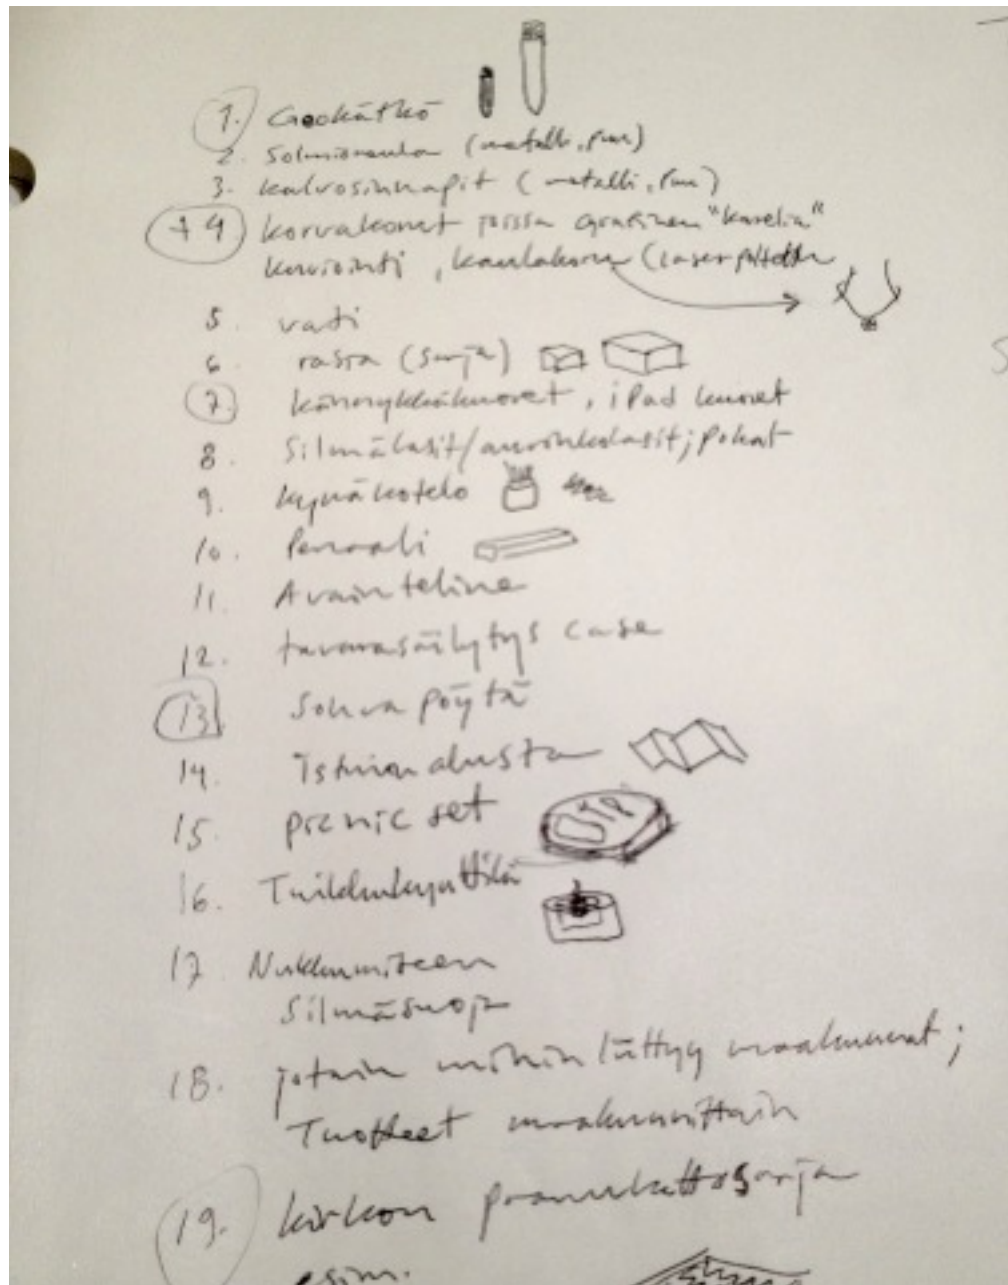 1. Geokätkö
2. Solmioneula (metalli, puu)
3. kalvosinnapit (metalli, puu)
+4 korvakorut joissa graafinen "karelia"
kuviointi, kaulakoru (laser
5. vati
6. rasia (sarja)
7. kännykkäkuoret, iPad kuoret
8. Silmälasit/aurinkolasit; pokat
9. kynäkotelo
10. Penaali
11. Avainteline
12. tavarasäilytys case
13 Sohva pöytä
14. istuinalusta
15. picnic set
16. Tuikkukynttilä
17. Nukkumiseen
Silmäsuoja
18. jotain mihin liittyy maakunnat;
Tuotteet maakunnittain
19. kirkon paanukattosarja
esim.